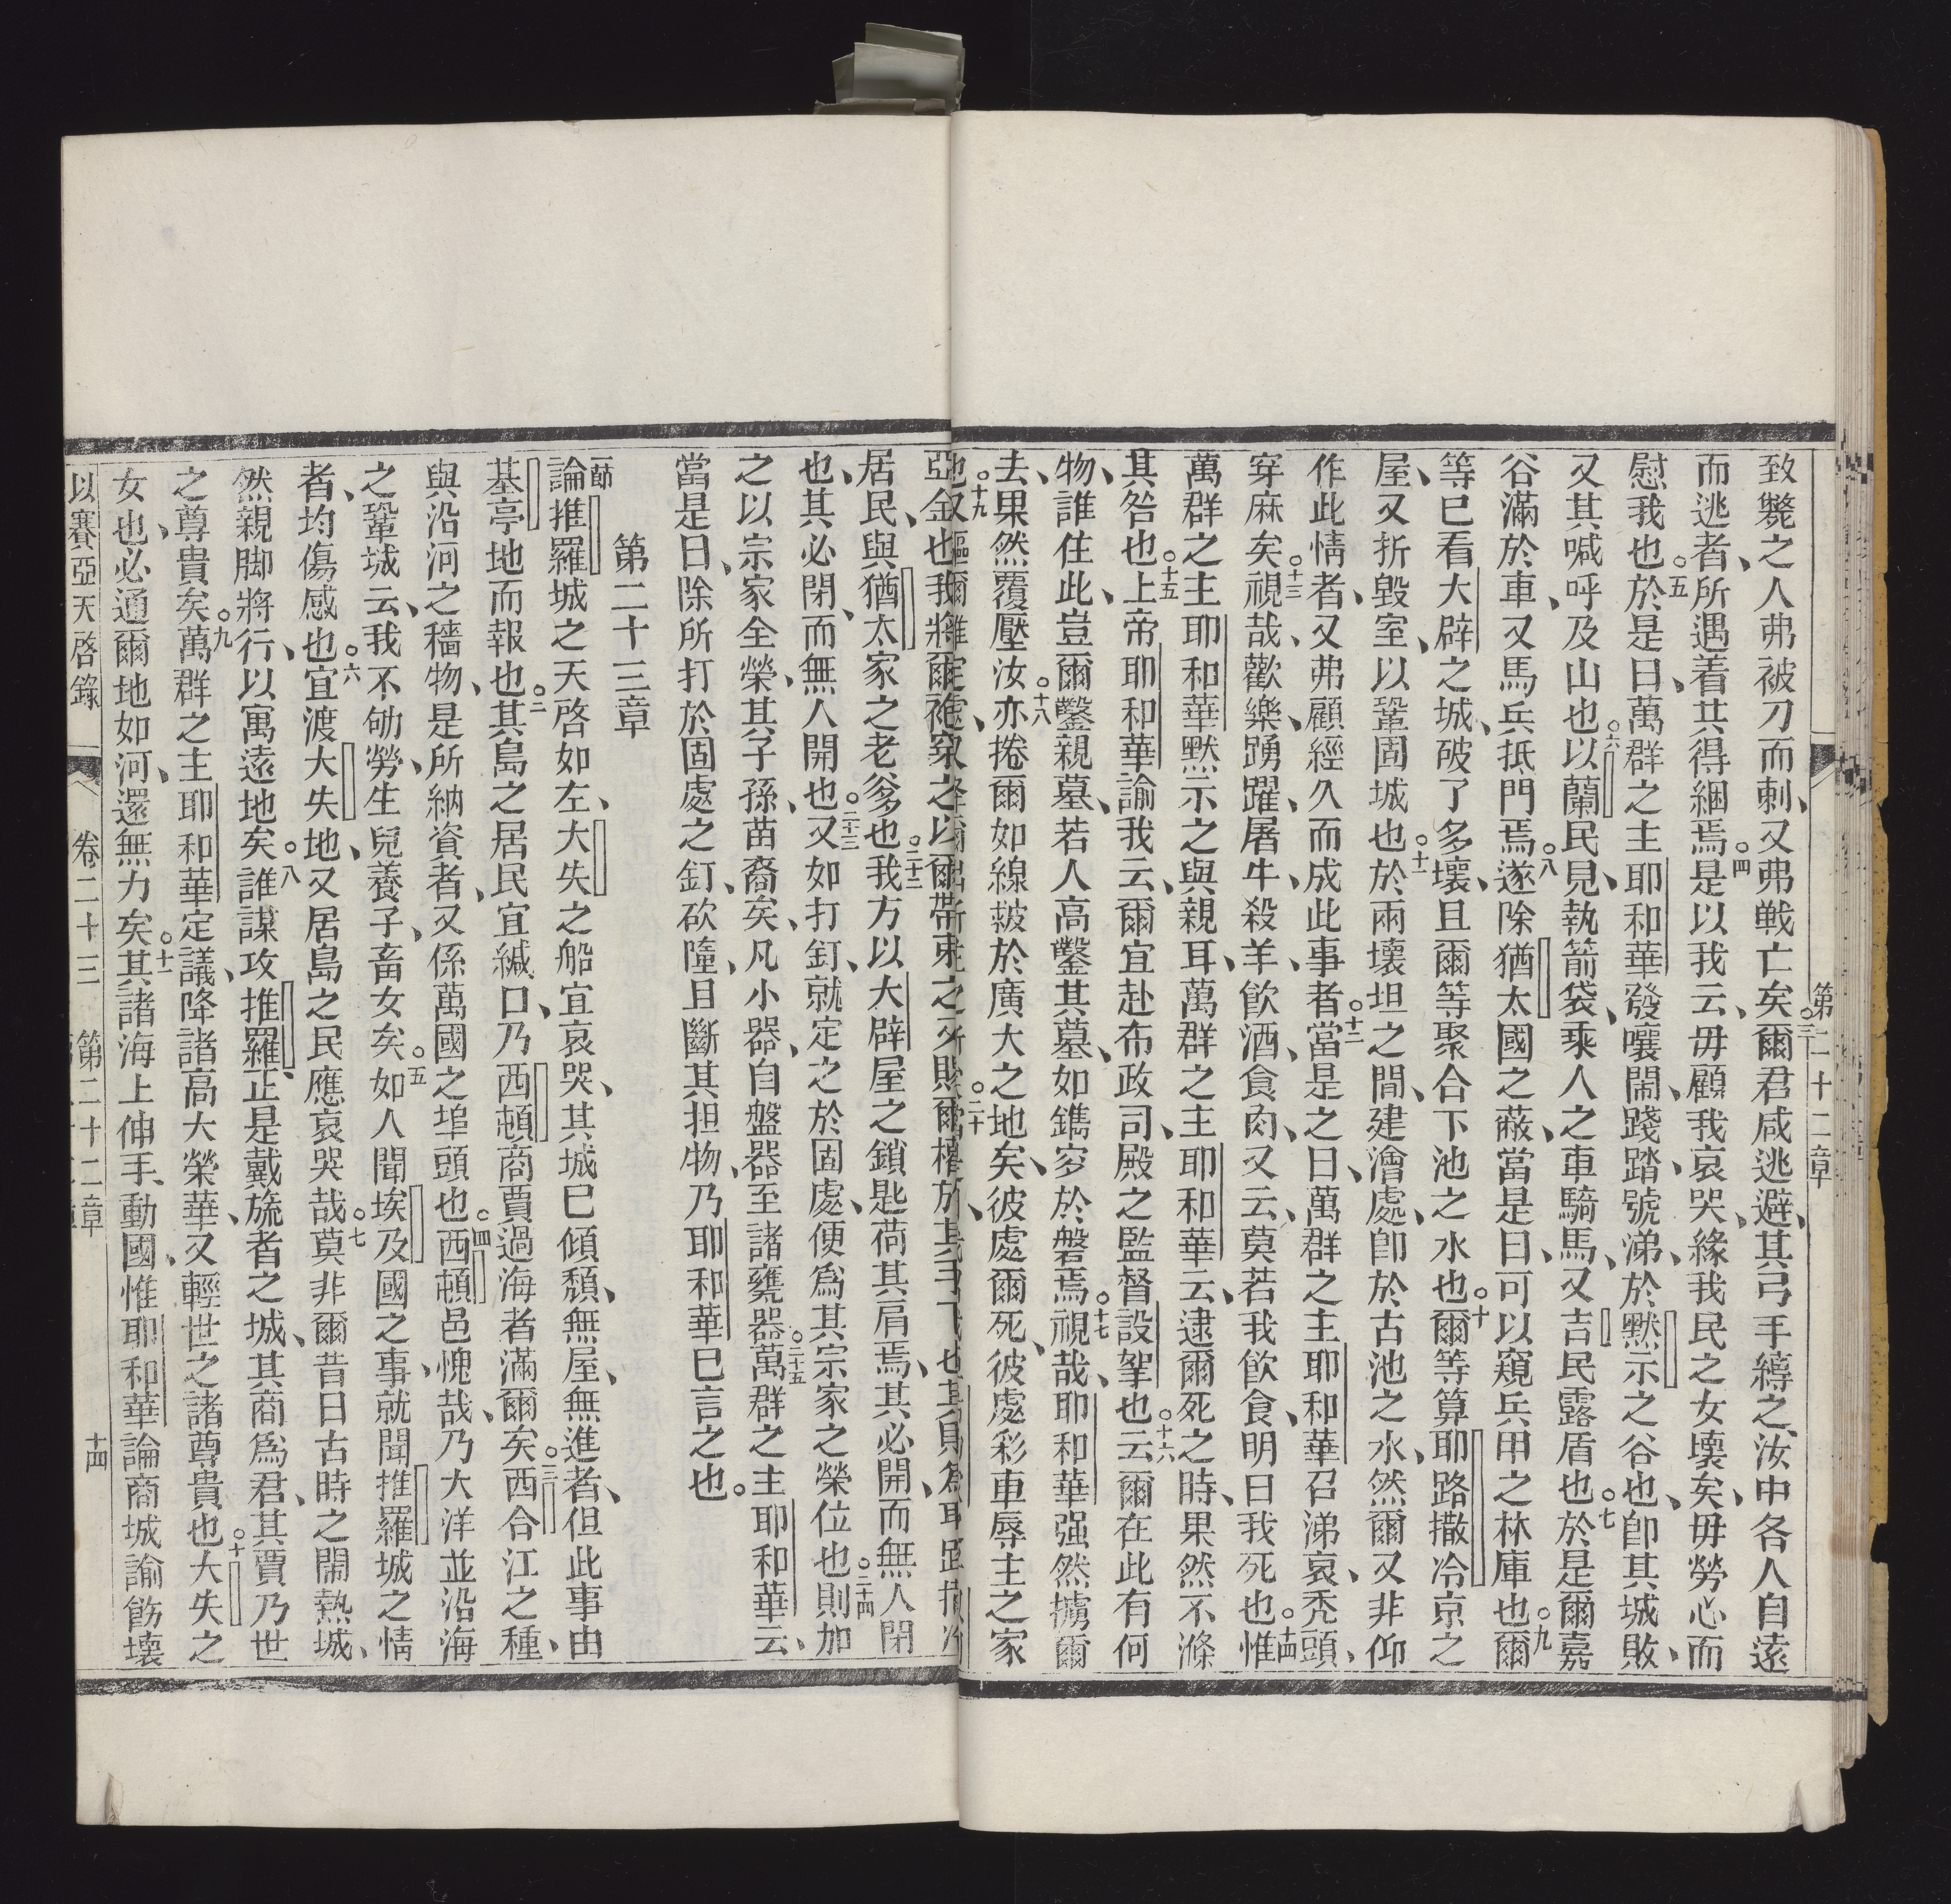 第二十二章
致斃之人弗被刀而刺、又弗戰亡矣。三爾君咸逃避、其弓手縛之、汝中各人自遠
而逃者、所遇着共得綑焉。四是以我云、毋顧我哀哭、緣我民之女壞矣、毋勞心而
慰我也。五於是日、萬群之主耶和華發嚷鬧、踐踏、號涕、於默示之谷也、卽其城敗、
又其喊呼及山也。六以蘭民見執箭袋、乘人之車騎馬、又吉民露盾也。七於是爾嘉
谷滿於車、又馬兵抵門焉。八遂除猶太國之蔽、當是日、可以窺兵甲之林庫也。九爾
等已看大辟之城、破了多壞、且爾等聚合下池之水也。十爾等算耶路撒冷京之
屋、又折毀室、以鞏固城也。十一於兩壞坦之間、建澮處、卽於古池之水、然爾又非仰
作此情者、又弗顧經久而成此事者。十二當是之日、萬群之主耶和華召涕哀、禿頭、
穿麻矣。十三視哉、歡樂、踴躍、屠牛、殺羊、飲酒、食肉、又云、莫若我飲食、明日我死也。十四惟
萬群之主耶和華默示之與親耳、萬群之主耶和華云、逮爾死之時、果然不滌
其咎也。十五上帝耶和華諭我云、爾宜赴布政司、殿之監督設挐也。十六云、爾在此有何
物、誰住此、豈爾鑿親墓、若人高鑿其墓、如鐫穸於磐焉。十七視哉、耶和華强然擄爾
去、果然覆壓汝。十八亦捲爾如線毬於廣大之地矣、彼處爾死、彼處彩車辱主之家
也。十九
居民、與猶太家之老爹也。二十二我方以大辟屋之鎖匙荷其肩焉、其必開、而無人閉
也、其必閉、而無人開也。二十三又如打釘、就定之於固處、便爲其宗家之榮位也。二十四則加
之以宗家全榮、其子孫、苗裔矣、凡小器、自盤器至諸甕器。二十五萬群之主耶和華云、
當是日、除所打於固處之釘、砍墮、且斷其担物、乃耶和華已言之也。
第二十三章
一節論推羅城之天啓如左、大失之船宜哀哭、其城已傾頹、無屋、無進者、但此事由
基亭地而報也。二其島之居民宜緘口、乃西頓商賈過海者滿爾矣。三西合江之種、
與沿河之穡物、是所納資者、又係萬國之埠頭也。四西頓邑愧哉、乃大洋並沿海
之鞏城云、我不劬勞、生兒養子、畜女矣。五如人聞埃及國之事、就聞推羅城之情
者、均傷感也。六宜渡大失地、又居島之民應哀哭哉。七莫非爾昔日古時之鬧熱城、
然親脚將行、以寓遠地矣。八誰謀攻推羅、正是戴旒者之城、其商爲君、其賈乃世
之尊貴矣。九萬群之主耶和華定議、降諸高大榮華、又輕世之諸尊貴也。十大失之
女也、必通爾地如河、還無力矣。十一其諸海上伸手、動國、惟耶和華論商城諭飭壞
以賽亞天啓錄 卷二十三 第二十二章 十四